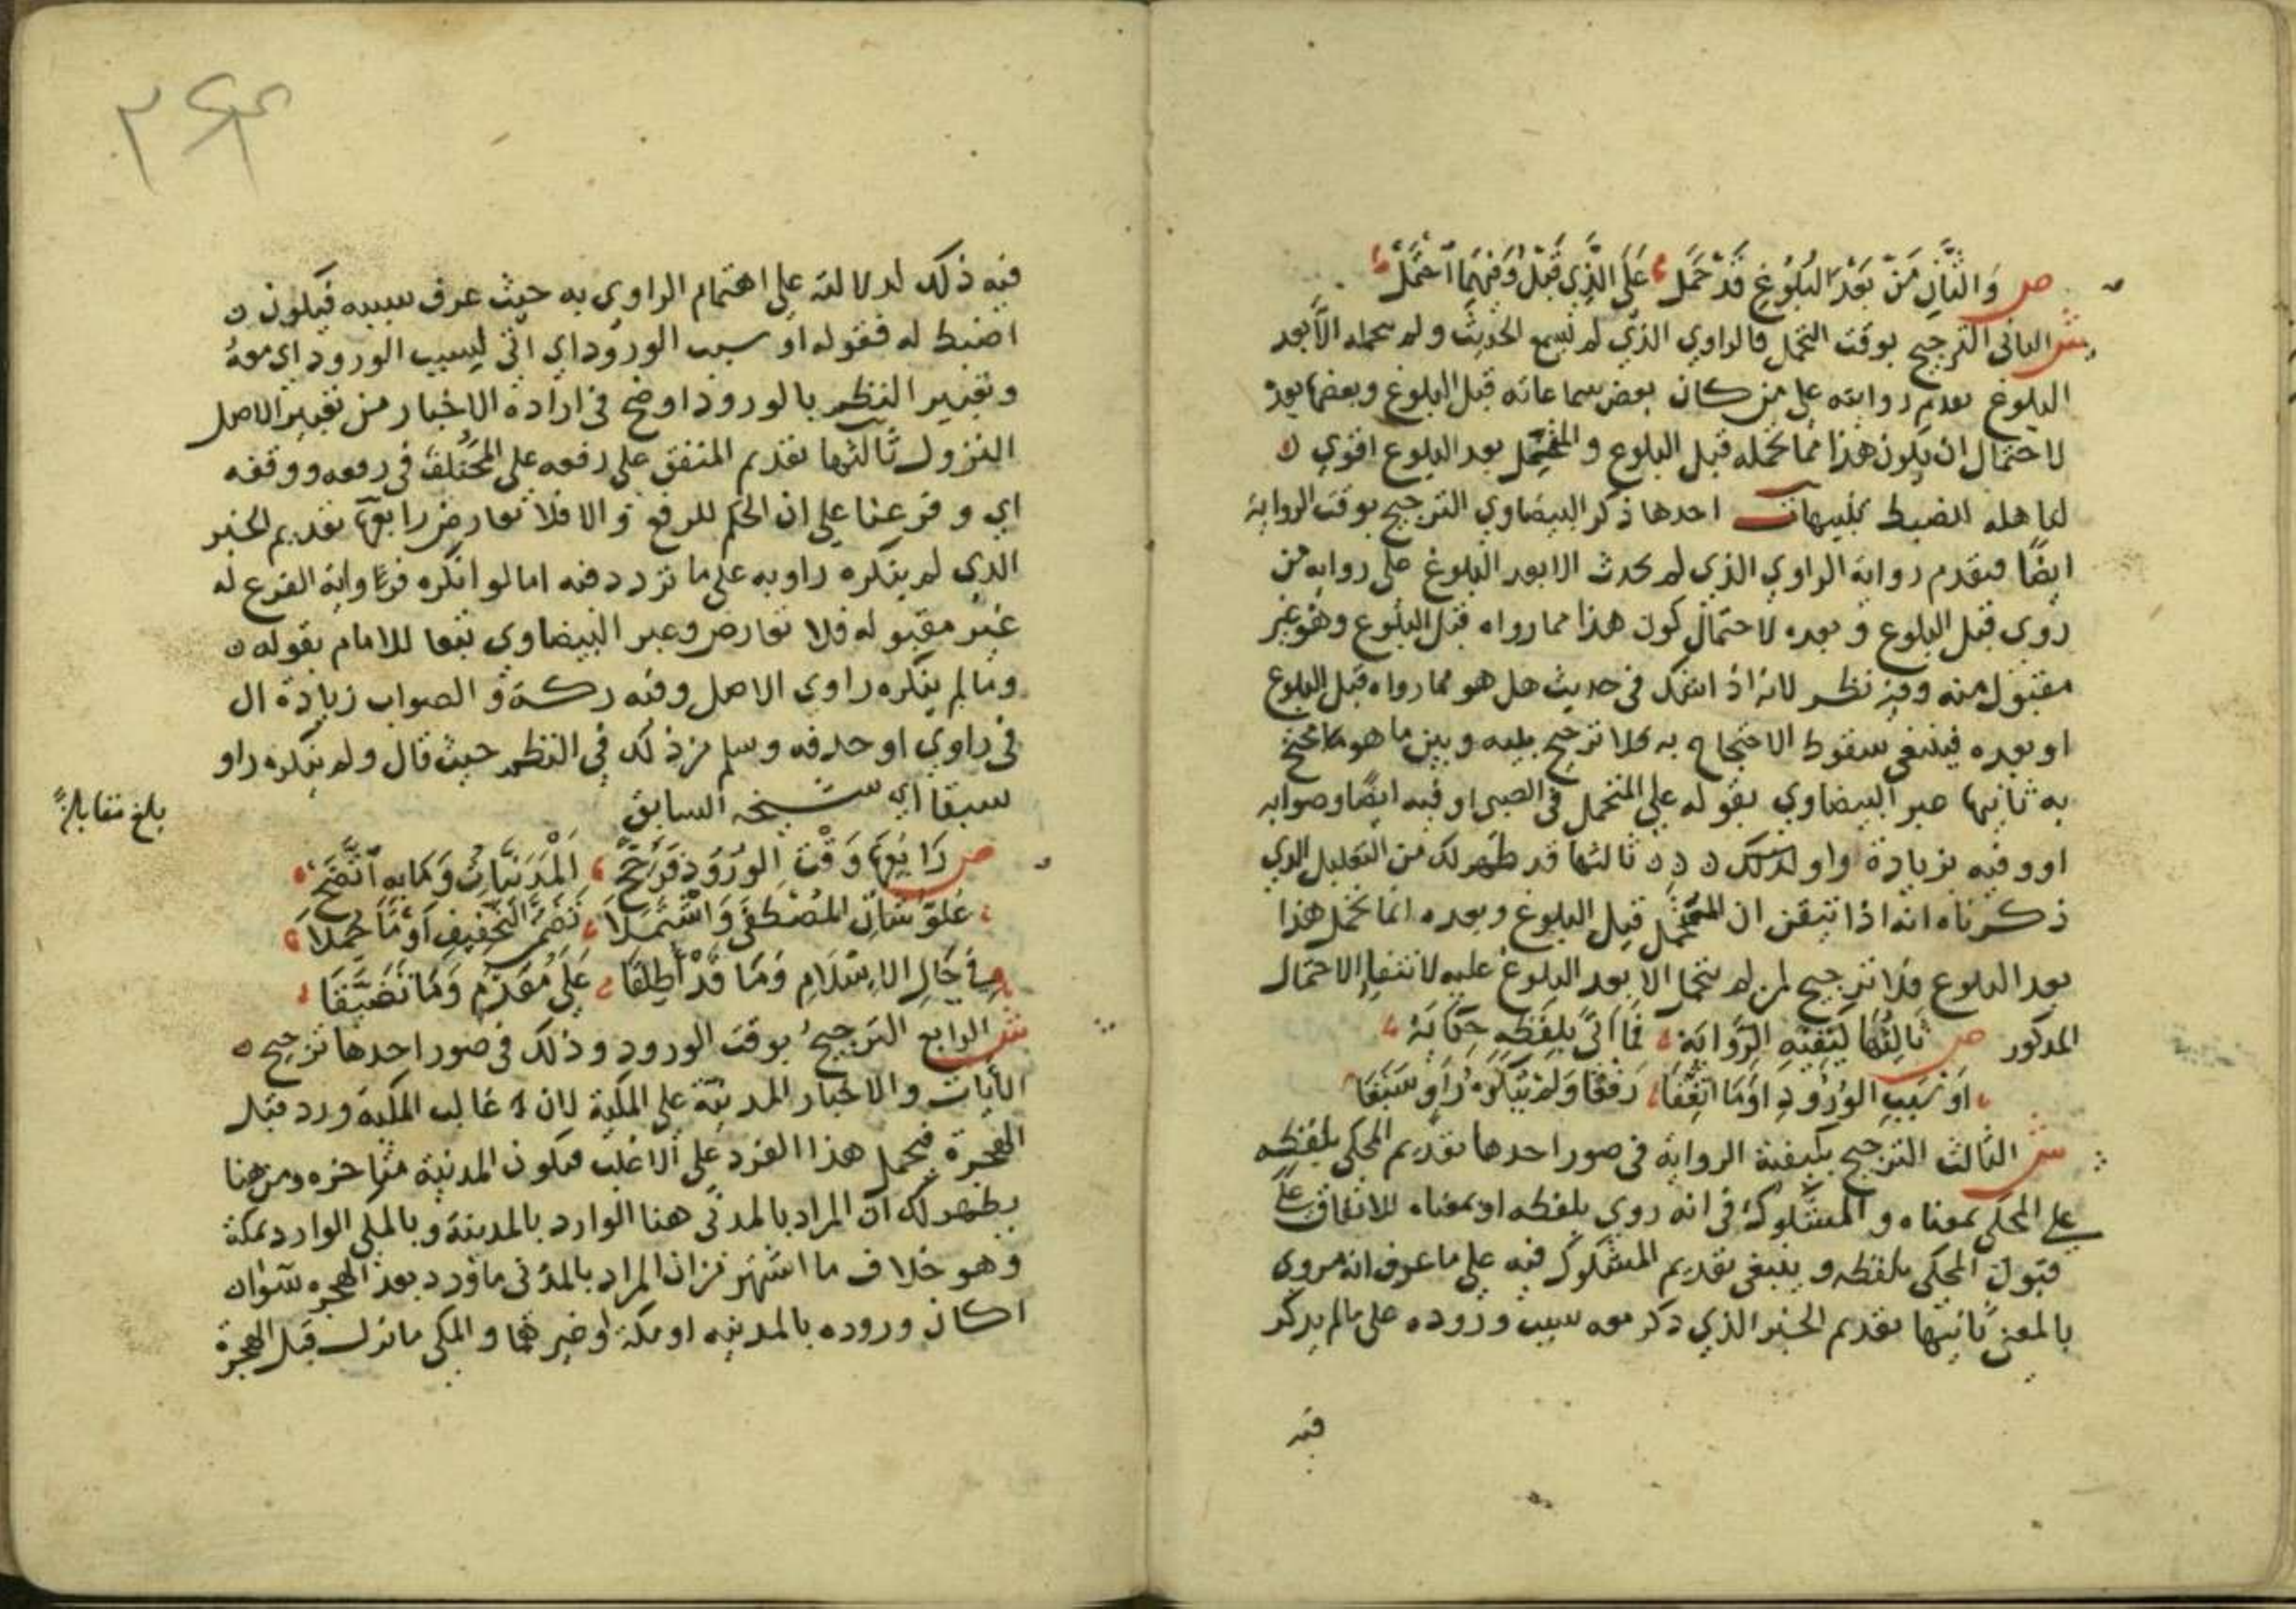 ص وَالثَّانِ مَنْ بَعْدَ البُلُوغِ قَدْ حَمَلْ عَلَى الَّذِي قَبْلُ وَفِيهِمَا احْتَمَلْ
ش الثانى الترجيح بوقت التحمل فالراوي الذي لم يسمع الحديث ولم يحمله الا بعد
البلوغ تقدم روايته على من كان بعض سماعاته قبل البلوغ وبعضها بعد
لاحتمال ان يكون هذا مما تحمله قبل البلوغ والمتحمل بعد البلوغ اقوي
لتاهله الضبط تنبيهات احدها ذكر البيضاوي الترجيح بوقت الرواية
ايضًا فتقدم رواية الراوي الذي لم يحدث الا بعد البلوغ على رواية من
روي قبل البلوغ وبعده لاحتمال كون هذا مما رواه قبل البلوغ وهو غير
مقبول منه وفيه نظر لانه اذ اشك في حديث هل هو مما رواه قبل البلوغ
او بعده فينبغي سقوط الاحتجاج به فلا ترجيح بينه وبين ما هو محتج
به ثانيها عبر البيضاوي بقوله على المتحمل في الصبى او فيه ايضًا وصوابه
او وفيه بزيادة واو لذلك ثالثها قد ظهر لك من التعليل الذي
ذكرناه انه اذا تيقن ان المتحمل قبل البلوغ وبعده انما تحمل هذا
بعد البلوغ فلا ترجيح لمن لم يتحمل الا بعد البلوغ عليه لانتفاء الاحتمال
المذكور ص ثَالِثُهَا كَيْفِيَّةُ الرِّوَايَةْ فَمَا أَتَى بِلَفْظِهِ حِكَايَةْ
اَوْ سَبَبِ الوُرُودِ اَوْ مَا اتَّفَقَا رَفْعًا وَلَمْ يُنْكِرْهُ رَاوٍ سَبَقَا
ش الثالث الترجيح بكيفية الرواية في صور احدها تقديم المحكي بلفظه
على المحكي بمعناه والمشكوك في انه روي بلفظه او بمعناه للاتفاق على
قبول المحكي بلفظه وينبغي تقديم المشكوك فيه على ما عرف انه مروي
بالمعنى ثانيها تقديم الخبر الذي ذكر معه سبب وروده على ما لم يذكر
فيه
فيه ذلك لدلالته على اهتمام الراوي به حيث عرف سببه فيكون
اضبط له فقوله او سبب الورود اي اتى لسبب الورود اي معه
وتعبير النظم بالورود اوضح في ارادة الاخبار من تعبير الاصل
النزول ثالثها تقديم المتفق على رفعه على المختلف في رفعه ووقفه
اي وفرعنا على ان الحكم للرفع والا فلا تعارض رابعها تقديم الخبر
الذي لم ينكره راويه على ما تردد فيه اما لو انكره فرواية الفرع له
غير مقبوله فلا تعارض وعبر البيضاوي تبعا للامام بقوله
وما لم ينكره راوي الاصل وفيه ركة والصواب زيادة ال
في راوي او حذفه وسلم من ذلك في النظم حيث قال ولم ينكره راو
سبقا اي شيخه السابق
بلغ مقابلةً
ص رَابِعُهَا وَقْتُ الوُرُودِ فَرَجَحْ اَلْمَدَنِيَّاتُ وَمَا بِهِ اتَّضَحْ
عُلُوُّ شَانِ المُصْطَفَى وَاشْتَمَلَا تَضَمُّنَ التَّخْفِيفِ أَوْ مَا حُمِلَا
فِي حَالِ الاِسْلَامِ وَمَا قَدْ أُطْلِقَا عَلَى مُقَدَّمٍ وَمَا تَضَيَّقَا
ش الرابع الترجيحُ بوقت الورود وذلك في صور احدها ترجيح
الآيات والاخبار المدنية على المكية لان غالب المكية ورد قبل
الهجرة فيحمل هذا الفرد على الاغلب فتكون المدنية متاخره ومن هنا
يظهر لك ان المراد بالمدني هنا الوارد بالمدينة وبالمكي الوارد بمكة
وهو خلاف ما اشتهر من ان المراد بالمدني ما ورد بعد الهجره سوا
اكان وروده بالمدينه او مكة او غيرهما والمكي ما نزل قبل الهجرة